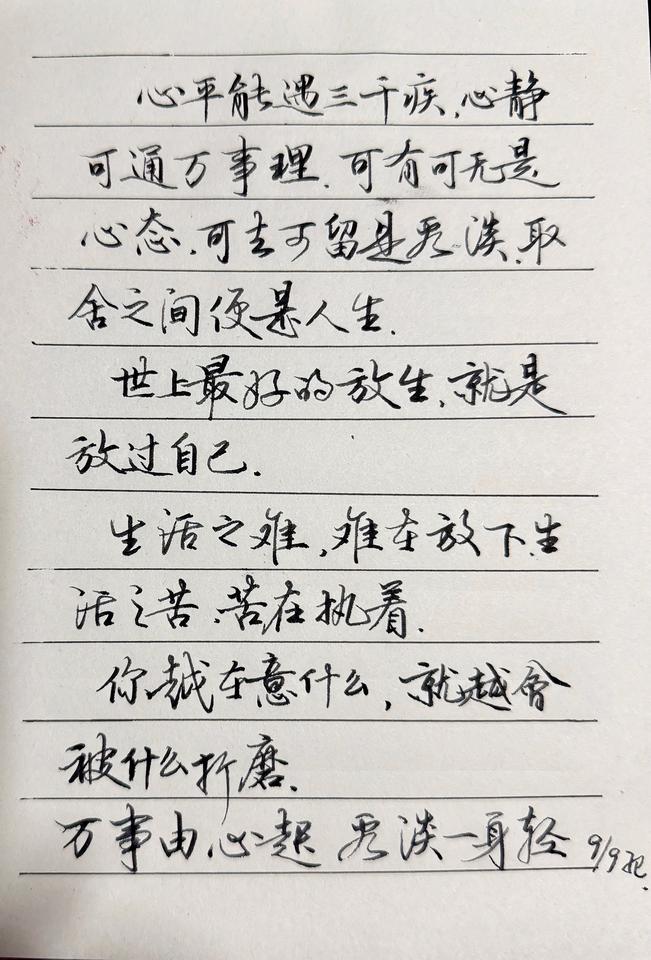 心平能遇三千疾,心静
可通万事理.可有可无是
心态.可去可留是看淡.取
舍之间便是人生.
世上最好的放生,就是
放过自己.
生活之难,难在放下.生
活之苦.苦在执着.
你越在意什么,就越会
被什么折磨.
万事由心起 看淡一身轻 9/9